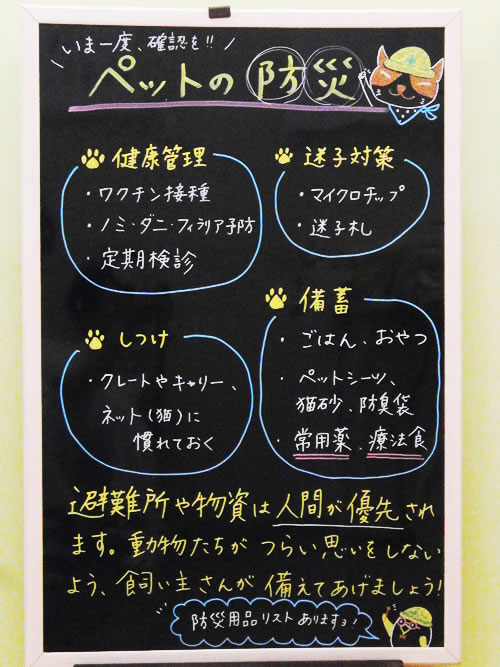 いま一度、確認を!!
ペットの防災
健康管理
・ワクチン接種
・ノミ・ダニ・フィラリア予防
・定期検診
迷子対策
・マイクロチップ
・迷子札
しつけ
・クレートやキャリー、
ネット(猫)に
慣れておく
備蓄
・ごはん、おやつ
・ペットシーツ、
猫砂、防臭袋
・常用薬、療法食
避難所や物資は人間が優先され
ます。動物たちがつらい思いをしない
よう、飼い主さんが備えてあげましょう!
防災用品リストありますョ!